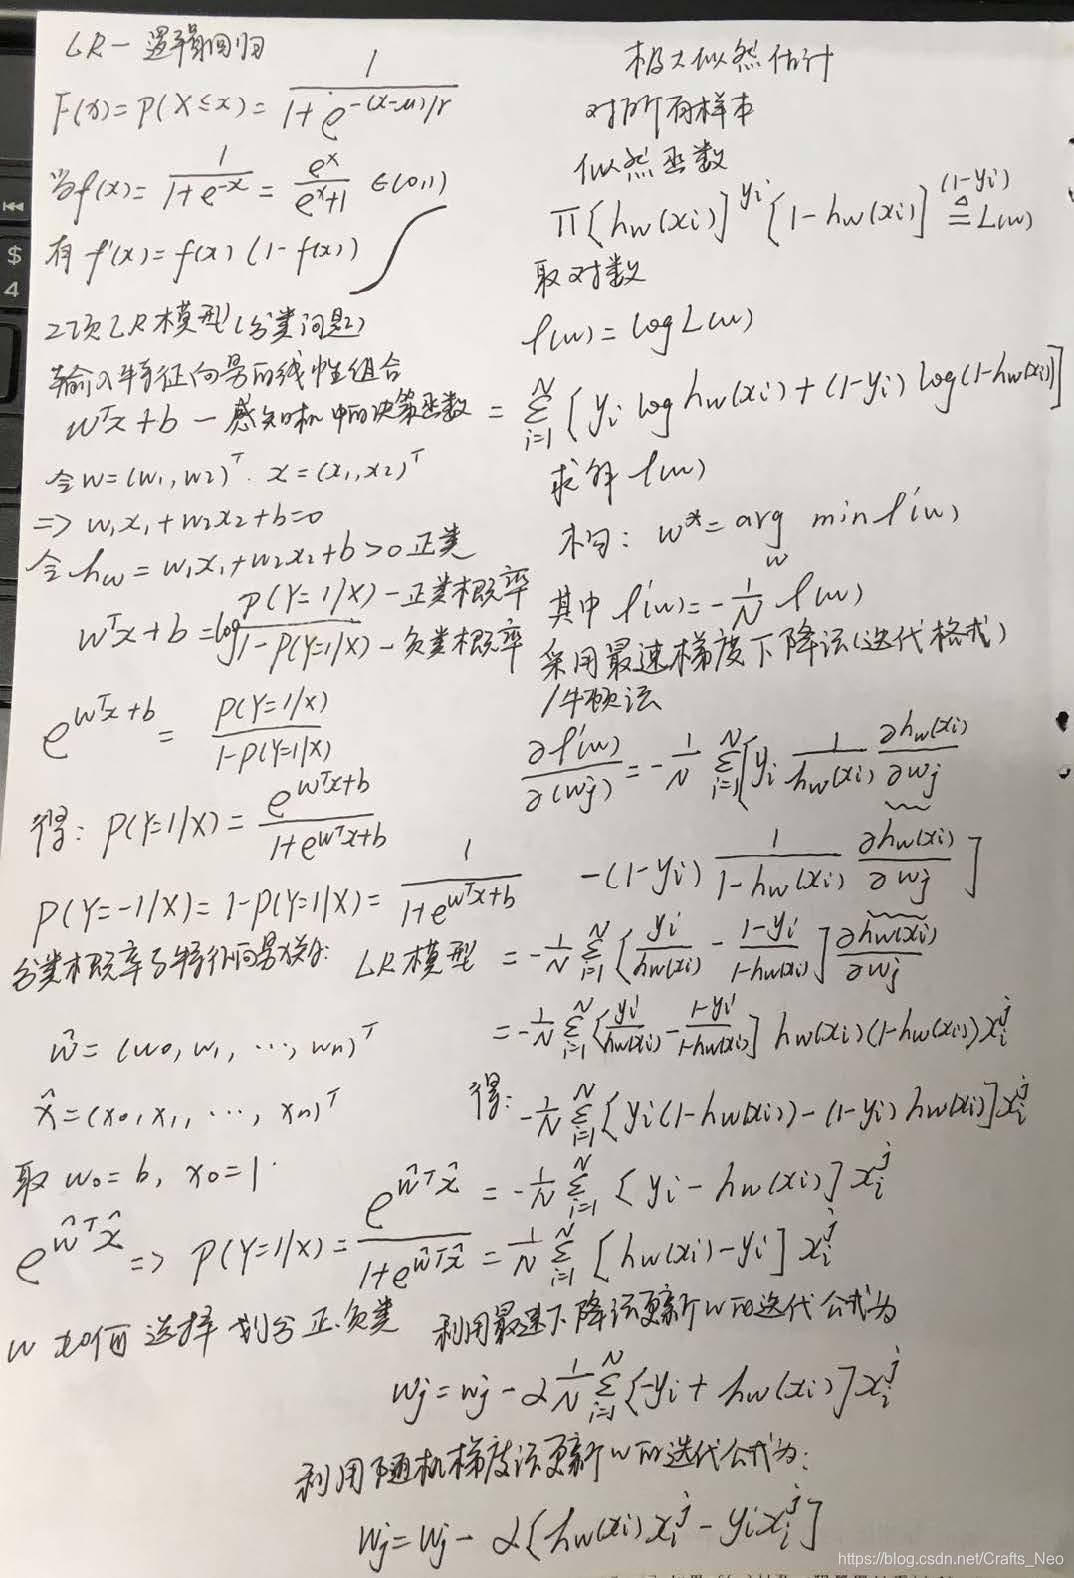 LR — 逻辑回归
F(x) = P(X ≤ x) = 1 / (1 + e^{-(x-μ)/r})
当f(x) = 1 / (1 + e^{-x}) = e^x / (e^x + 1) ∈ (0,1)
有 f'(x) = f(x) (1 - f(x))
二项LR模型(分类问题)
输入特征向量的线性组合
w^T x + b — 感知机中的决策函数
令 w = (w₁, w₂)^T . x = (x₁, x₂)^T
=> w₁x₁ + w₂x₂ + b = 0
令 h_w = w₁x₁ + w₂x₂ + b > 0 正类
w^T x + b = log P(Y=1/X) — 正类概率 / 1 - P(Y=1/X) — 负类概率
e^{w^T x + b} = P(Y=1/X) / 1 - P(Y=1/X)
得: P(Y=1/X) = e^{w^T x + b} / 1 + e^{w^T x + b}
P(Y=-1/X) = 1 - P(Y=1/X) = 1 / 1 + e^{w^T x + b}
分类概率与特征向量 LR模型
ŵ = (w₀, w₁, ⋯, wₙ)^T
x̂ = (x₀, x₁, ⋯, xₙ)^T
取 w₀ = b, x₀ = 1
e^{ŵ^T x̂} => P(Y=1/X) = e^{ŵ^T x̂} / 1 + e^{ŵ^T x̂}
w 如何选择 划分正.负类
极大似然估计
对所有样本
似然函数
Π [h_w(xi)]^{yi} [1 - h_w(xi)]^{(1-yi)} ≜ L(w)
取对数
l(w) = log L(w)
= Σ_{i=1}^{N} [yi log h_w(xi) + (1-yi) log(1-h_w(xi))]
求解 l(w)
木勾: w* = arg min_w l'(w)
其中 l'(w) = -1/N l(w)
采用最速梯度下降法(迭代格式)
/牛顿法
∂l'(w) / ∂(wj) = -1/N Σ_{i=1}^{N} [yi 1/h_w(xi) ∂h_w(xi)/∂wj
-(1-yi) 1/(1-h_w(xi)) ∂h_w(xi)/∂wj]
= -1/N Σ_{i=1}^{N} [yi/h_w(xi) - (1-yi)/(1-h_w(xi))] ∂h_w(xi)/∂wj
= -1/N Σ_{i=1}^{N} [yi/h_w(xi) - (1-yi)/(1-h_w(xi))] h_w(xi)(1-h_w(xi))x_i^j
得: -1/N Σ_{i=1}^{N} [yi(1-h_w(xi)) - (1-yi) h_w(xi)] x_i^j
= -1/N Σ_{i=1}^{N} [yi - h_w(xi)] x_i^j
= 1/N Σ_{i=1}^{N} [h_w(xi) - yi] x_i^j
利用最速下降法更新w的迭代公式为
wj = wj - α 1/N Σ_{i=1}^{N} [-yi + h_w(xi)] x_i^j
利用随机梯度法更新w的迭代公式为:
wj = wj - α [h_w(xi) x_i^j - yi x_i^j]
$
4
https://blog.csdn.net/Crafts_Neo